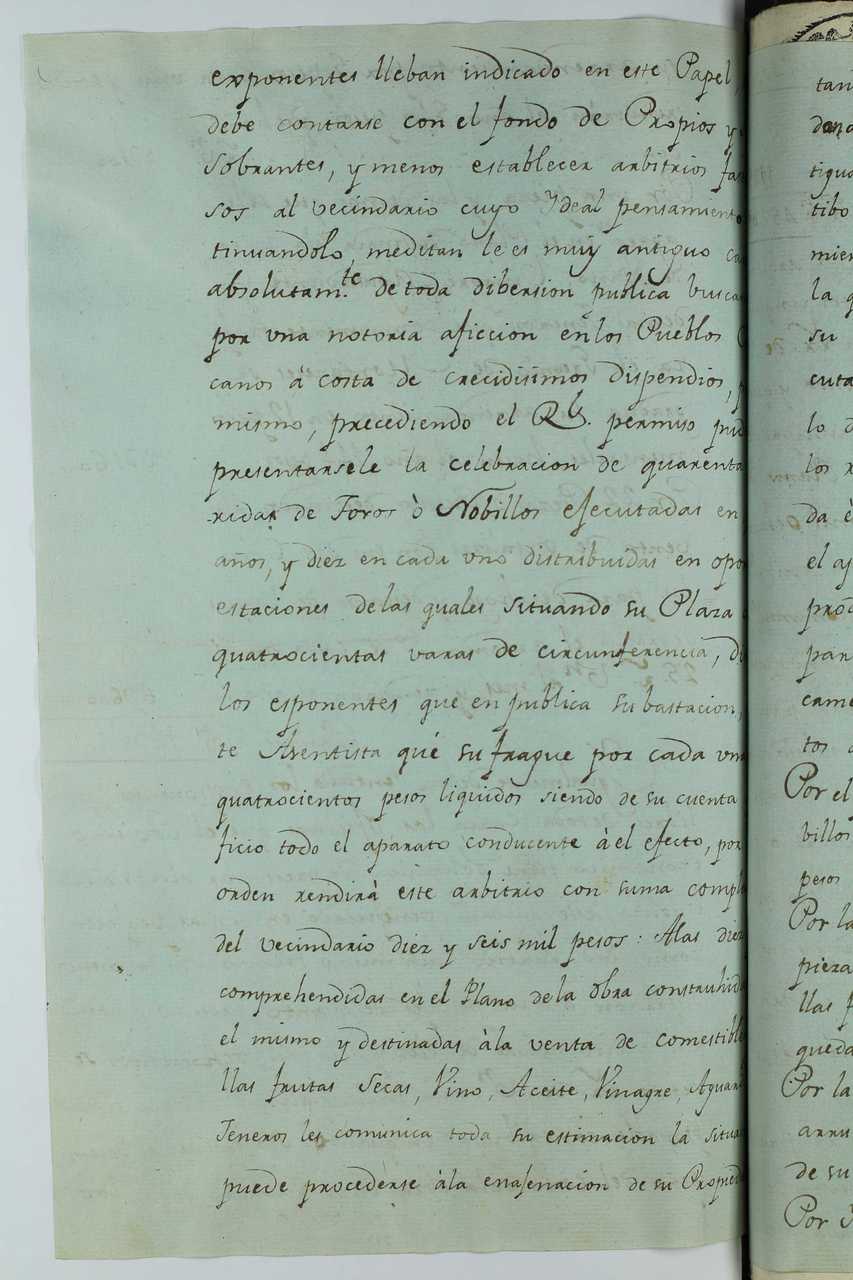 exponentes lleban indicado en este Papel,
debe contarse con el fondo de Propios y
sobrantes, y menos establecer arbitrios
sos al vecindario cuyo Ydeal pensamiento
tinuandolo, meditan les es muy antiguo
absolutam.te de toda dibersion publica
por una notoria aficcion en los Pueblos
canos á costa de crecidisimos dispendios,
mismo, precediendo el Rl. permiso
presentarsele la celebracion de quarenta
rridas de Toros ò Nobillos efecutadas en
años, y diez en cada uno distribuidas en
estaciones de las quales situando su Plaza
quatrocientas varas de circunferencia,
los esponentes que en publica subastacion,
te Asentista qué sufrague por cada
quatrocientos pesos liquidos siendo de su cuenta
ficio todo el aparato conducente à el efecto, por
orden rendirà este arbitrio con suma
del vecindario diez y seis mil pesos: Alas
comprehendidas en el Plano de la obra
el mismo y destinadas àla venta de
llas frutas secas, Vino, Aceite, Vinagre,
Jeneros les comunica toda su estimacion la
puede procederse àla enafenacion de su
tan
tigua
tibo
la
su
lo
los
da
el
tos
Por el
billos
pesos
Por la
pieza
llas
queda
Por la
de su
Por